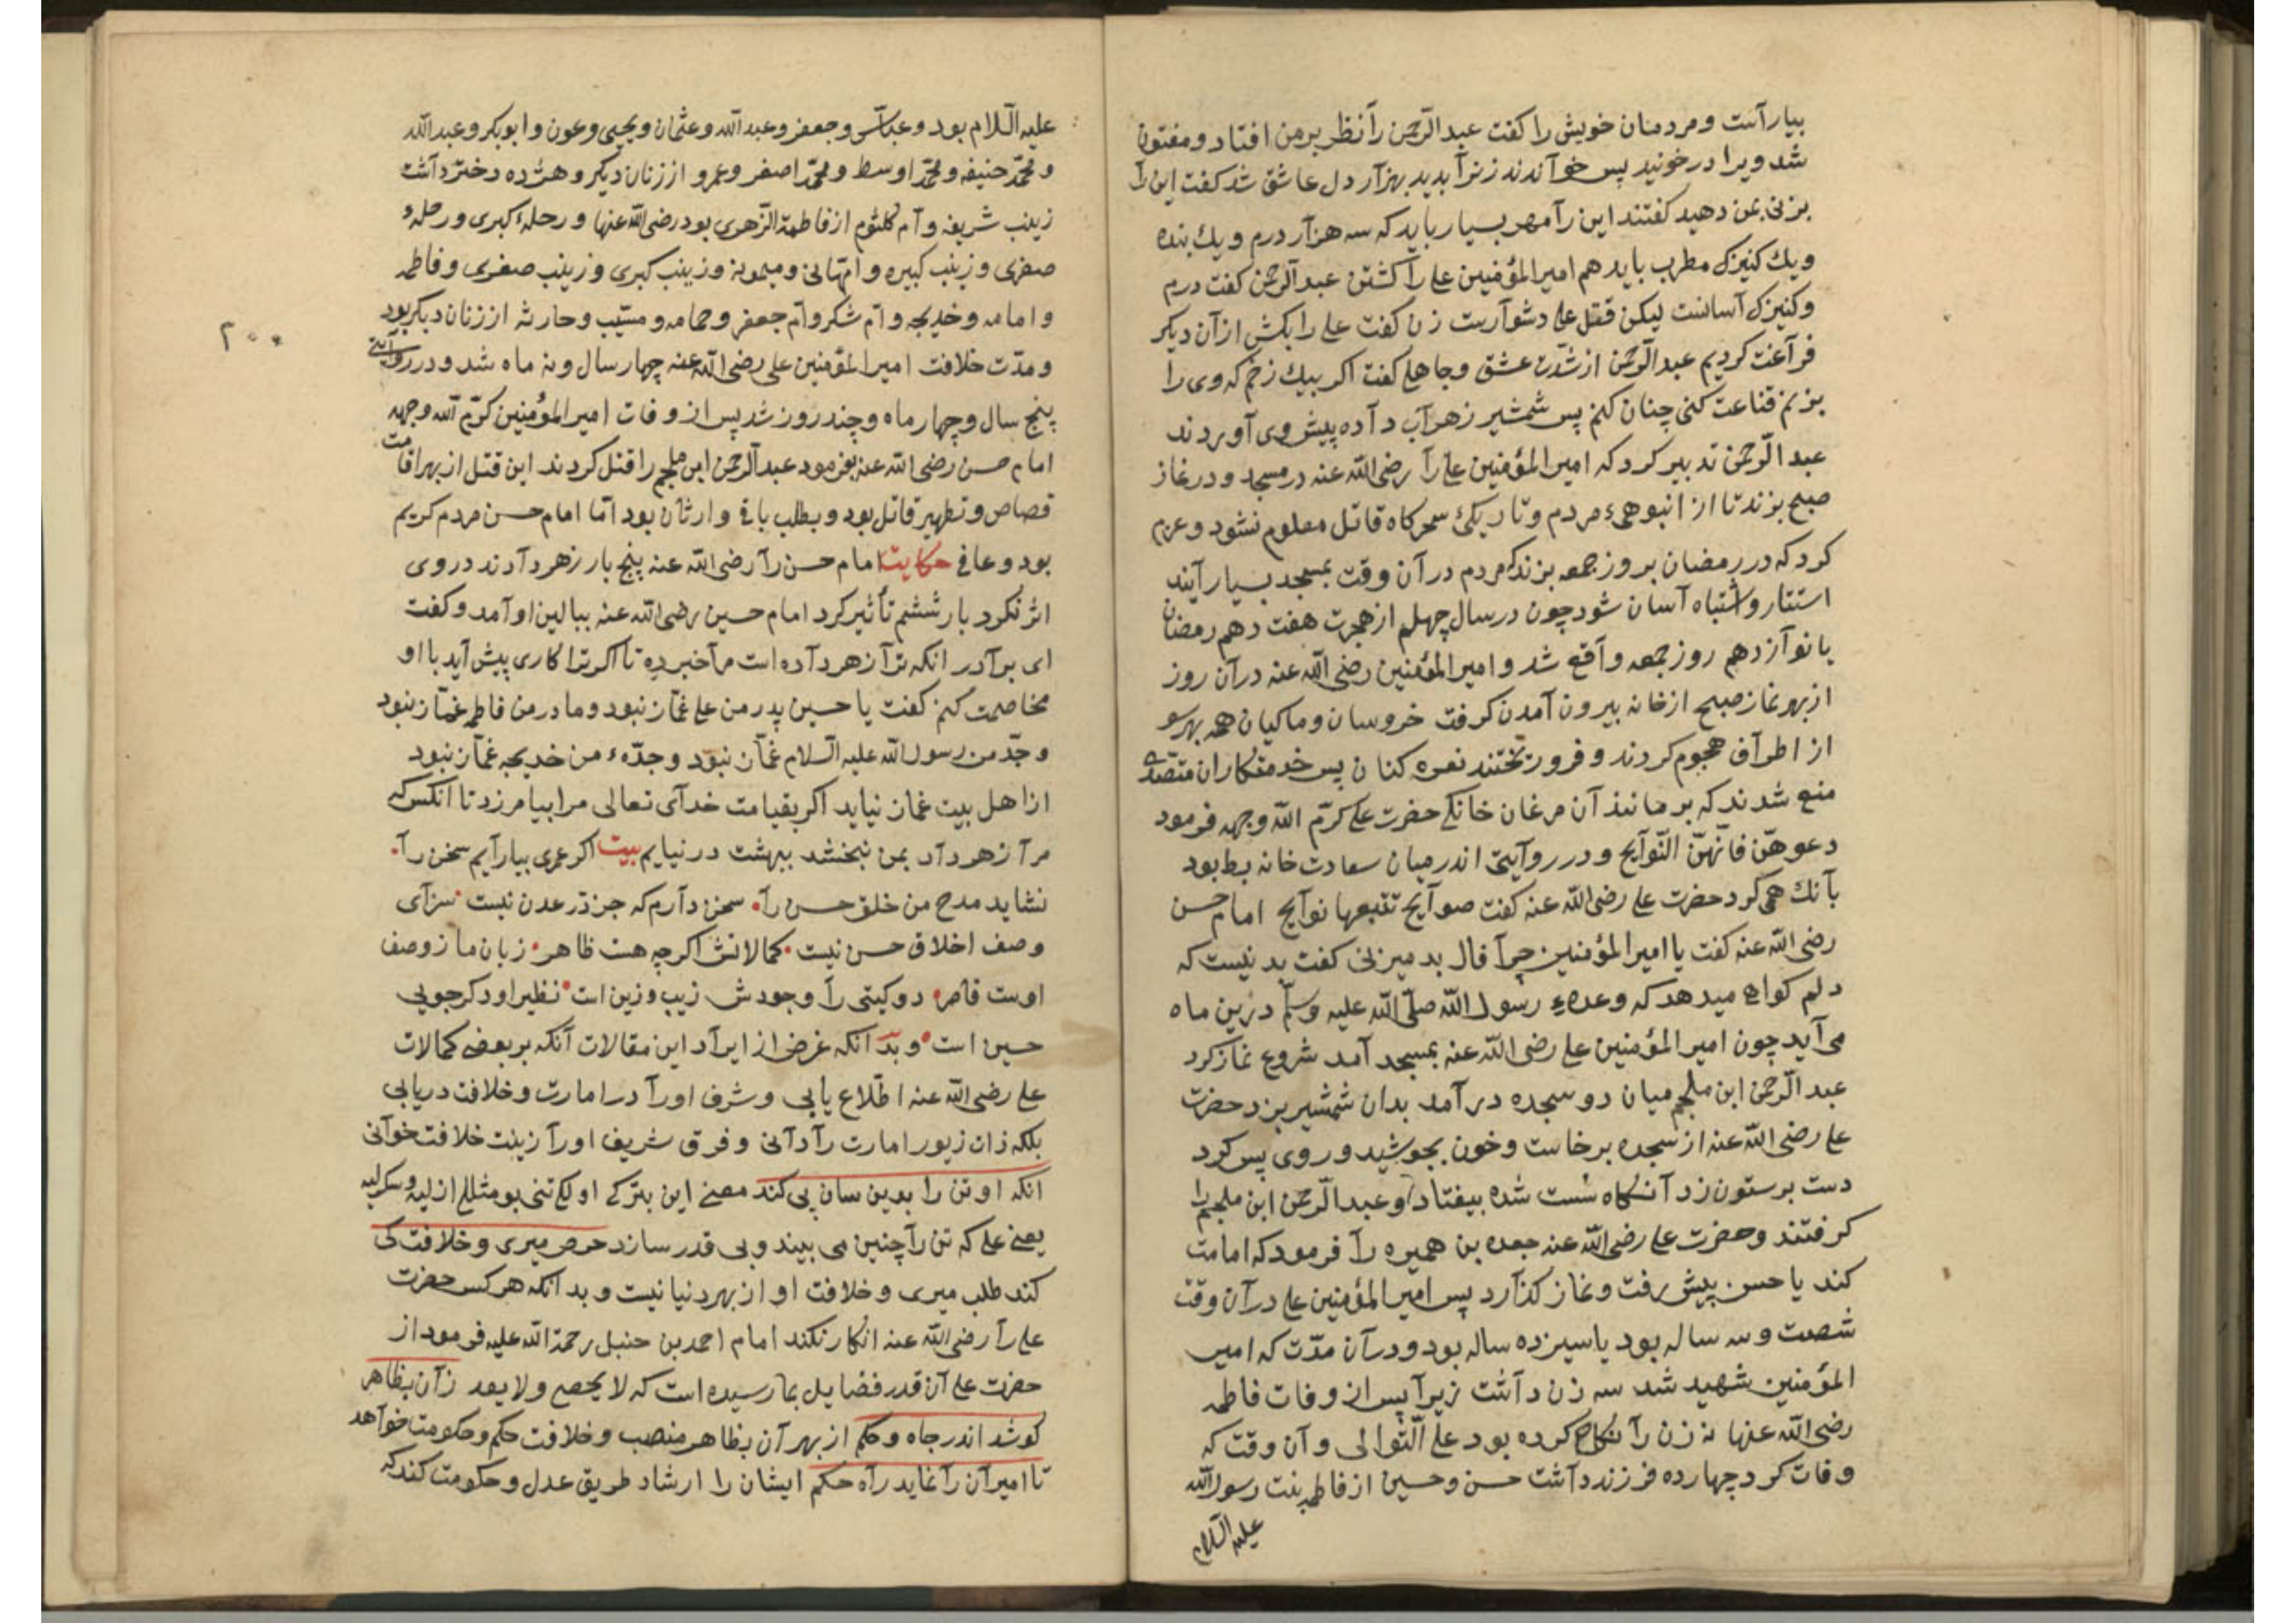 بیارآست ومردمان خویش را کفت عبدالرّحمن رآ نظر برمن افتاد ومفتون
شد ویرا درخونید پس خوآندند زنرآ بدید بهزآر دل عاشق شد کفت این رآ
بزنی بمن دهید کفتند این رآ مهر بسیار باید که سه هزآر درم ویك بنده
ویك کنیزك مطرب باید هم امیرالمؤمنین علی رآ کشتن عبدالرحمن کفت درم
وکنیزك آسانست لیکن قتل علی دشوآرست زن کفت علی را بکش ازآن دیکر
فرآغت کردیم عبدالرّحمن ازشدّت عشق وجاهلی کفت اکر بیك زخم که وی را
بزنم قناعت کنی چنان کنم پس شمشیر زهرآب دآده پیش وی آوردند
عبدالرّحمن تدبیر کرد که امیرالمؤمنین علی رآ رضی الله عنه درمسجد ودرنماز
صبح بزند تا از انبوهیء مردم وتاریکیٔ سحرکاه قاتل معلوم نشود وعزم
کرد که در رمضان بروز جمعه بزند که مردم درآن وقت بمسجد بسیار آیند
استتار واشتباه آسان شود چون درسال چهلم ازهجرت هفت دهم رمضان
یا نوآزدهم روز جمعه وآقع شد وامیرالمؤمنین رضی الله عنه درآن روز
ازبهر نماز صبح ازخانه بیرون آمدن کرفت خروسان وماکیان همه بهرسو
از اطرآف هجوم کردند وفرو ریختند نعره کنان پس خدمتکاران متصدّی
منع شدند که برمانند آن مرغان خانکی حضرت علی کرّم الله وجهه فرمود
دعوهنّ فانّهنّ النّوآیح ودر روآیتی اندرمیان سعادت خانه بط بود
بآنك همی کرد حضرت علی رضی الله عنه کفت صوآیح تتبعها نوآیح امام حسن
رضی الله عنه کفت یا امیرالمؤمنین چرآ فال بد میزنی کفت بد نیست که
دلم کواهی میدهد که وعدهٔ رسول الله صلّی الله علیه وسلّم درین ماه
می آید چون امیرالمؤمنین علی رضی الله عنه بمسجد آمد شروع نماز کرد
عبدالرّحمن ابن ملجم میان دوسجده درآمد بدان شمشیر بزد حضرت
علی رضی الله عنه ازسجده برخاست وخون بجوشید وروی پس کرد
دست برستون زد آنکاه سُست شده بیفتاد وعبدالرّحمن ابن ملجم را
کرفتند وحضرت علی رضی الله عنه جعده بن همیره رآ فرمود که امامت
کند یا حسن پیش رفت ونماز کذآرد پس امیرالمؤمنین علی درآن وقت
شصت وسه ساله بود یا سیزده ساله بود ودرآن مدّت که امیر
المؤمنین شهید شد سه زن دآشت زیرآ پس از وفات فاطمه
رضی الله عنها نه زن رآ نکاح کرده بود علی التّوالی وآن وقت که
وفات کرد چهارده فرزند دآشت حسن وحسین ازفاطمه بنت رسول الله
علیه السّلام
علیه السّلام بود وعبّاس وجعفر وعبدالله وعثمان ویحیی وعون وابوبکر وعبدالله
ومحمّد حنیفه ومحمّد اوسط ومحمّد اصغر وعمرو اززنان دیکر وهشده دختر دآشت
زینب شریفه وامّ کلثوم ازفاطمة الزّهری بود رضی الله عنها ورحلهٔ کبری ورحلهٔ
صغری وزینب کبیره وامّهانی ومیمونه وزینب کبری وزینب صغری وفاطمه
وامامه وخدیجه وامّ شکر وامّ جعفر وحمامه ومسیّب وحارثه اززنان دیکر بود
ومدّت خلافت امیرالمؤمنین علی رضی الله عنه چهار سال ونه ماه شد ودر روآیتی
۲۰۰
پنج سال وچهار ماه وچند روز شد پس از وفات امیرالمؤمنین کرّم الله وجهه
امام حسن رضی الله عنه بفرمود عبدالرّحمن ابن ملجم را قتل کردند این قتل ازبهر اقامت
قصاص وتطهیر قاتل بود وبطلب باقی وارثان بود امّا امام حسن مردم کریم
بود وعافی حکایت امام حسن رآ رضی الله عنه پنج بار زهر دآدند در وی
اثر نکرد بار ششم تأثیر کرد امام حسین رضی الله عنه ببالین او آمد وکفت
ای برآدر انکه ترآ زهر دآده است مرآ خبر ده تا اکر ترا کاری پیش آید با او
مخاصمت کنم کفت یا حسین پدر من علی غمّاز نبود ومادر من فاطمه غمّاز نبود
وجدّ من رسول الله علیه السّلام غمّآز نبود وجدّهء من خدیجه غمّآز نبود
ازاهل بیت غماز نیاید اکر بقیامت خدآی تعالی مرا بیامرزد تا انکس که
مرآ زهر دآد بمن نبخشد ببهشت درنیایم بیت اکر عمری بیارآیم سخن رآ
نشاید مدح من خلق حسن رآ سخن دآرم که جز درّ عدن نیست سزآی
وصف اخلاق حسن نیست کمالاتش اکرچه هست ظاهر زبان ما زوصف
اوست قاصر دو کیتی رآ وجودش زیب وزین است نظیر او دکرجویی
حسین است وبدآنکه غرض از ایرآد این مقالات آنکه بربعضی کمالات
علی رضی الله عنه اطّلاع یابی وشرف اورآ در امارت وخلافت دریابی
بلکه زان زیور امارت رآ دآنی وفرق شریف اورآ زینت خلافت خوآنی
انکه او تن را بدین سان پی کند معنی این بترکی اولکه تنی بو مثللو ازلیه وسکرلیه
یعنی علی که تن رآ چنین می بیند وبی قدر سازد حرص میری وخلافت کی
کند طلب میری وخلافت او ازبهر دنیا نیست وبدآنکه هرکس حضرت
علی رآ رضی الله عنه انکار نکند امام احمد بن حنبل رحمة الله علیه فرمود از
حضرت علی آن قدر فضایل بما رسیده است که لا یحصی ولا یعد زآن بظاهر
کوشد اندر جاه وحکم ازبهر آن بظاهر منصب وخلافت حکم وحکومت خوآهد
تا امیرآن رآ نماید رآه حکم ایشان را ارشاد طریق عدل وحکومت کند که